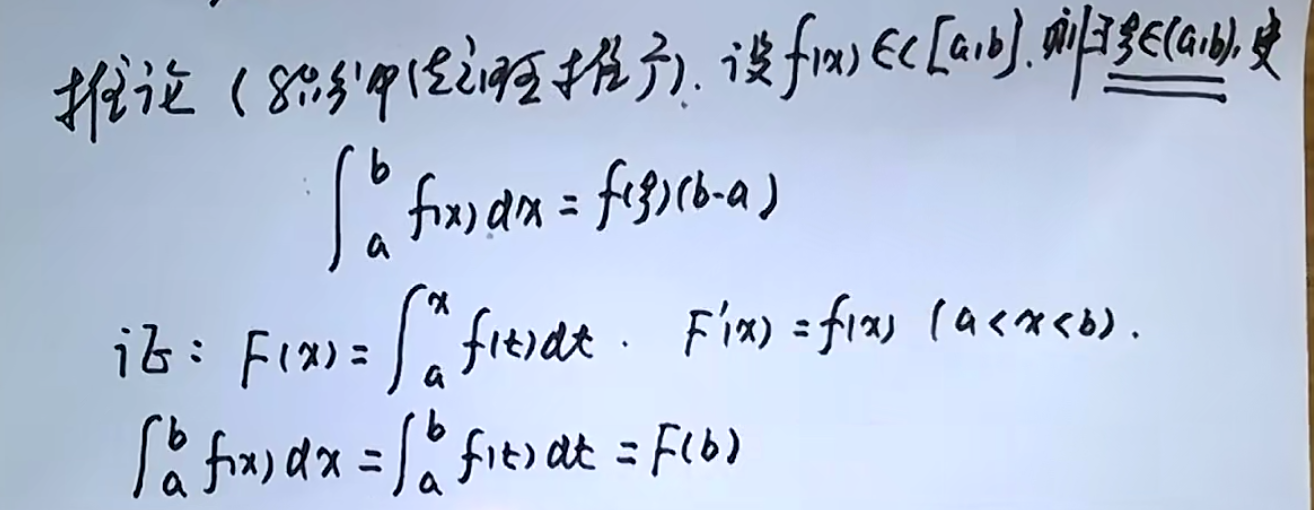 推论(积分中值定理推广). 设f(x)∈C[a,b]. 则∃ξ∈(a,b), 使
∫_a^b f(x)dx = f(ξ)(b-a)
证: F(x) = ∫_a^x f(t)dt . F'(x) = f(x) (a<x<b).
∫_a^b f(x)dx = ∫_a^b f(t)dt = F(b)